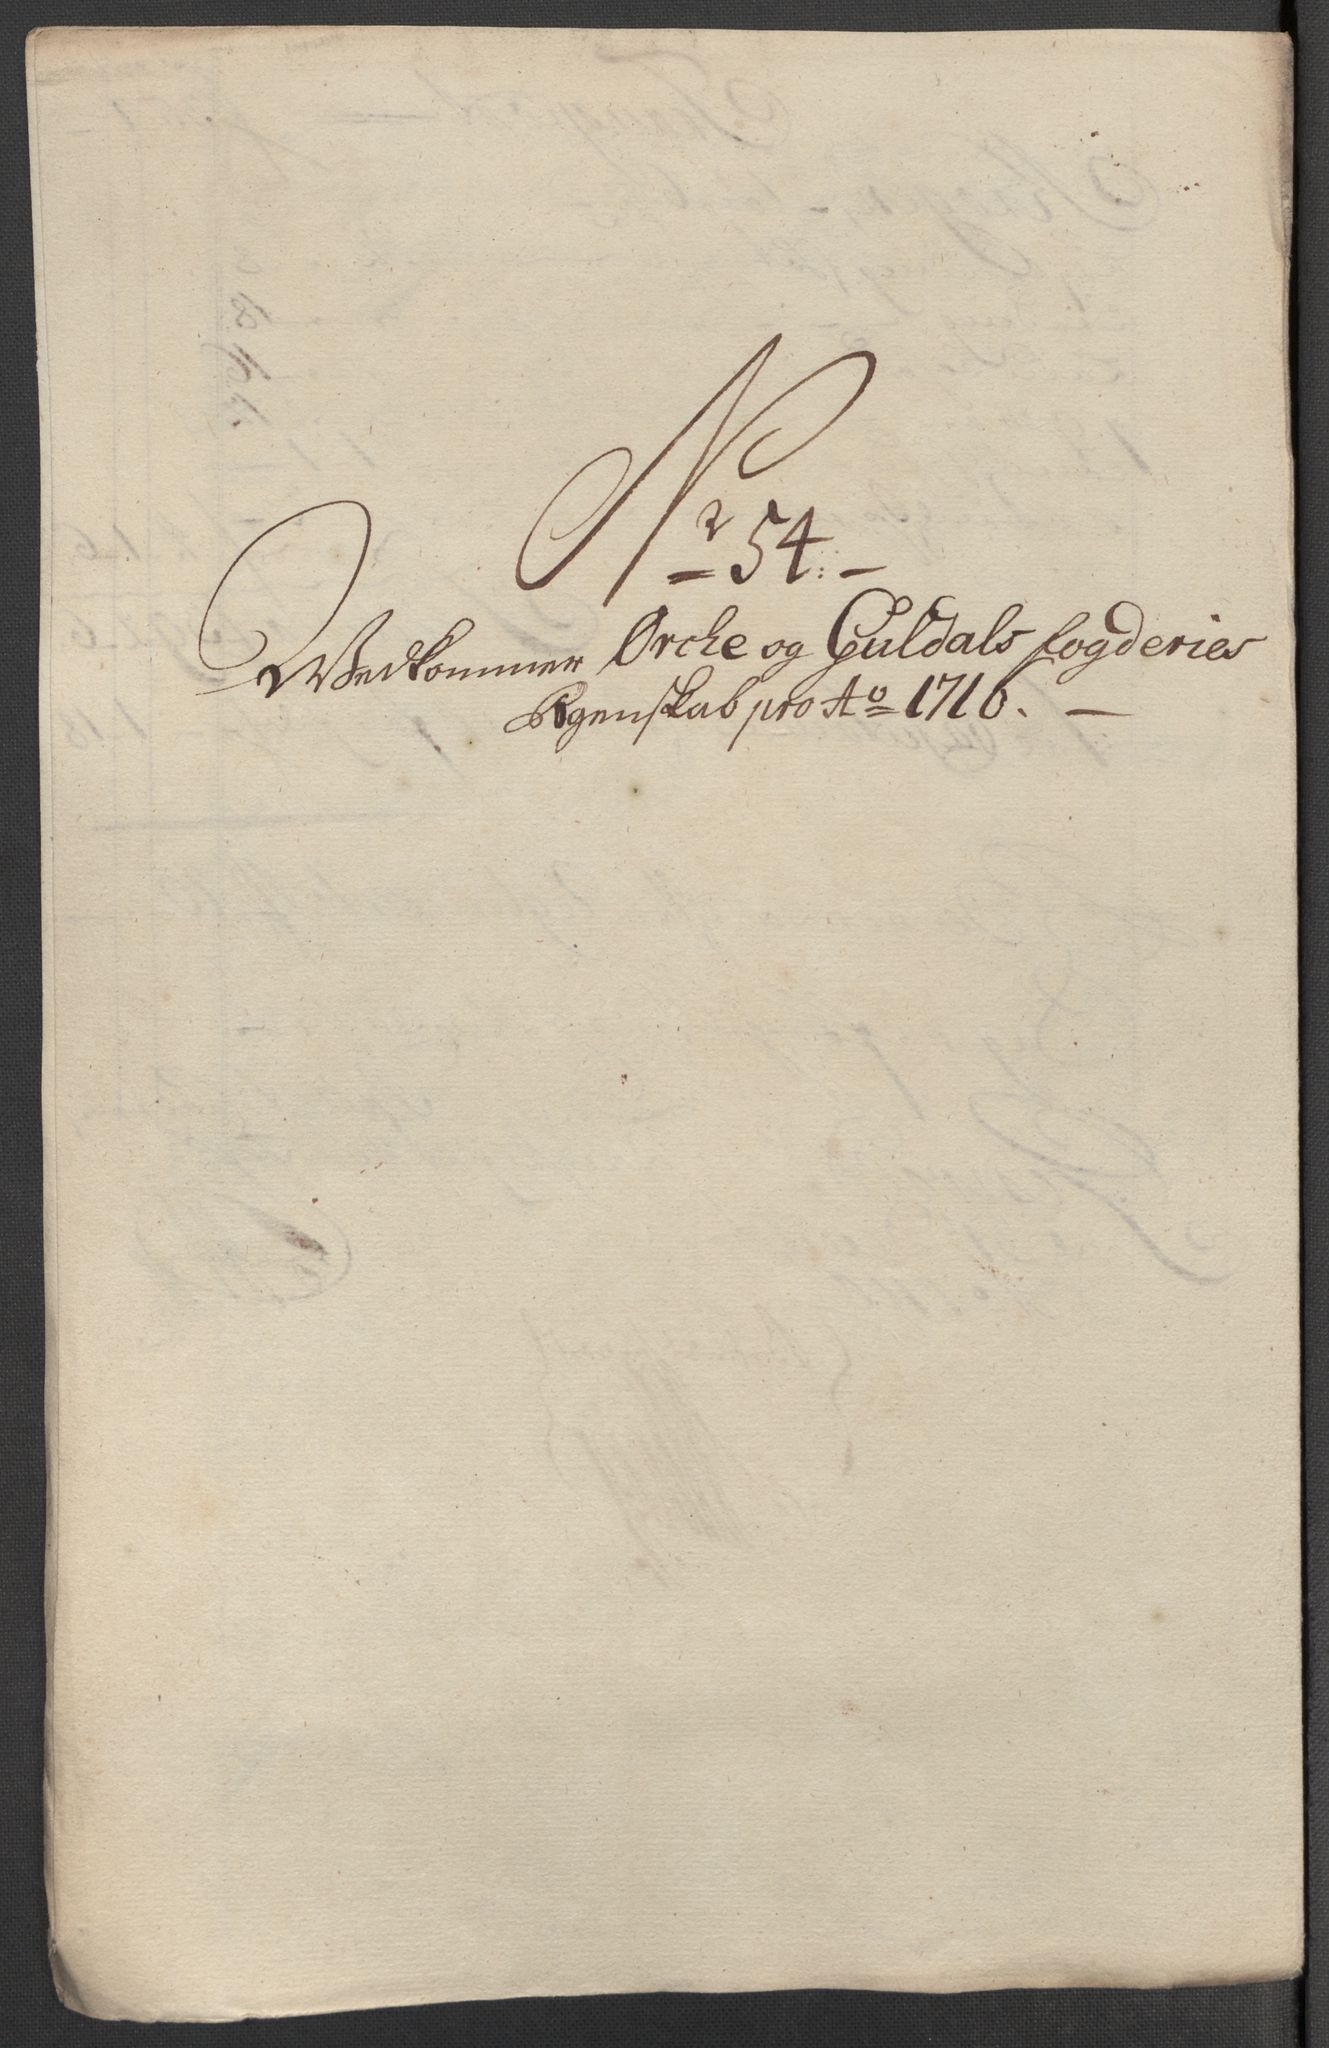 Nr 54.
Wedkommer Orcke og Guldals fogderies
Regenskab pro Ao 1716.